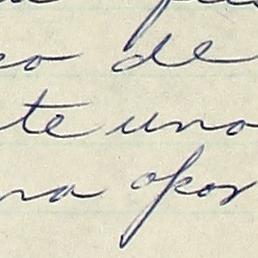 co de
te uno
na opor